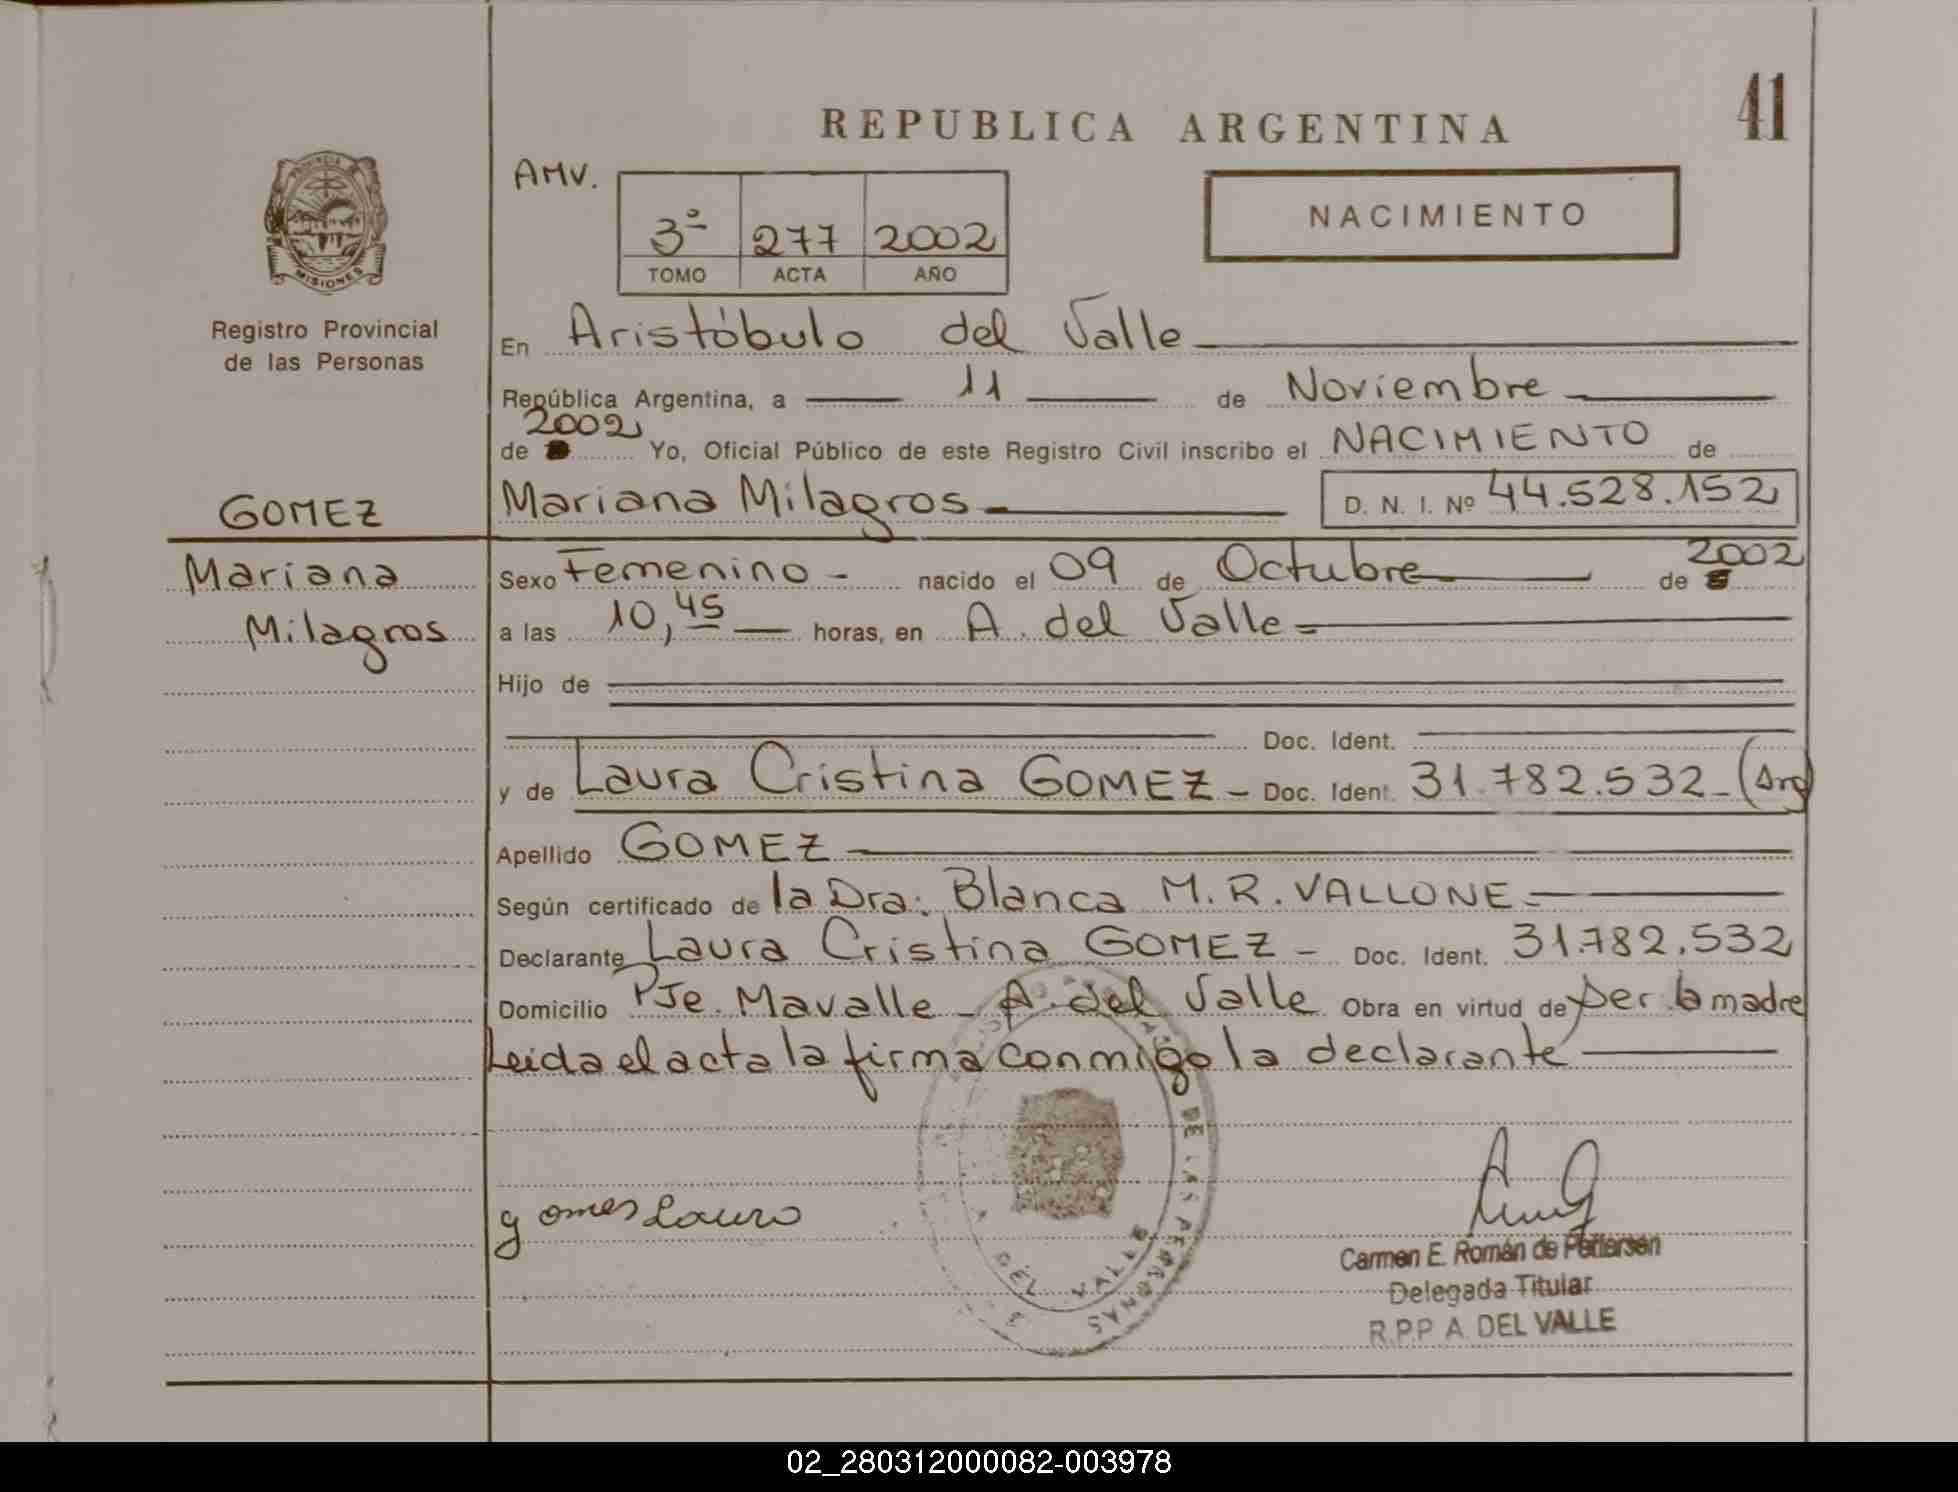 41
REPUBLICA ARGENTINA
AMV.
3º 277 2002
TOMO ACTA AÑO
NACIMIENTO
PROVINCIA
MISIONES
Registro Provincial
de las Personas
GOMEZ
Mariana
Milagros
En Aristóbulo del Valle
República Argentina, a 11 de Noviembre
de 2002 Yo, Oficial Público de este Registro Civil inscribo el NACIMIENTO de
Mariana Milagros D. N. I. Nº 44.528.152
Sexo Femenino - nacido el 09 de Octubre de 2002
a las 10,45 horas, en A. del Valle
Hijo de
Doc. Ident.
y de Laura Cristina GOMEZ - Doc. Ident. 31.782.532 - (Arg)
Apellido GOMEZ
Según certificado de la Dra: Blanca M. R. VALLONE
Declarante Laura Cristina GOMEZ - Doc. Ident. 31.782.532
Domicilio PJe. Mavalle - A. del Valle Obra en virtud de ser la madre
Leida el acta la firma conmigo la declarante
gomes Laura
DE LAS PERSONAS
DEL VALLE
Carmen E. Román de
Delegada Titular
R.P.P A. DEL VALLE
02_280312000082-003978